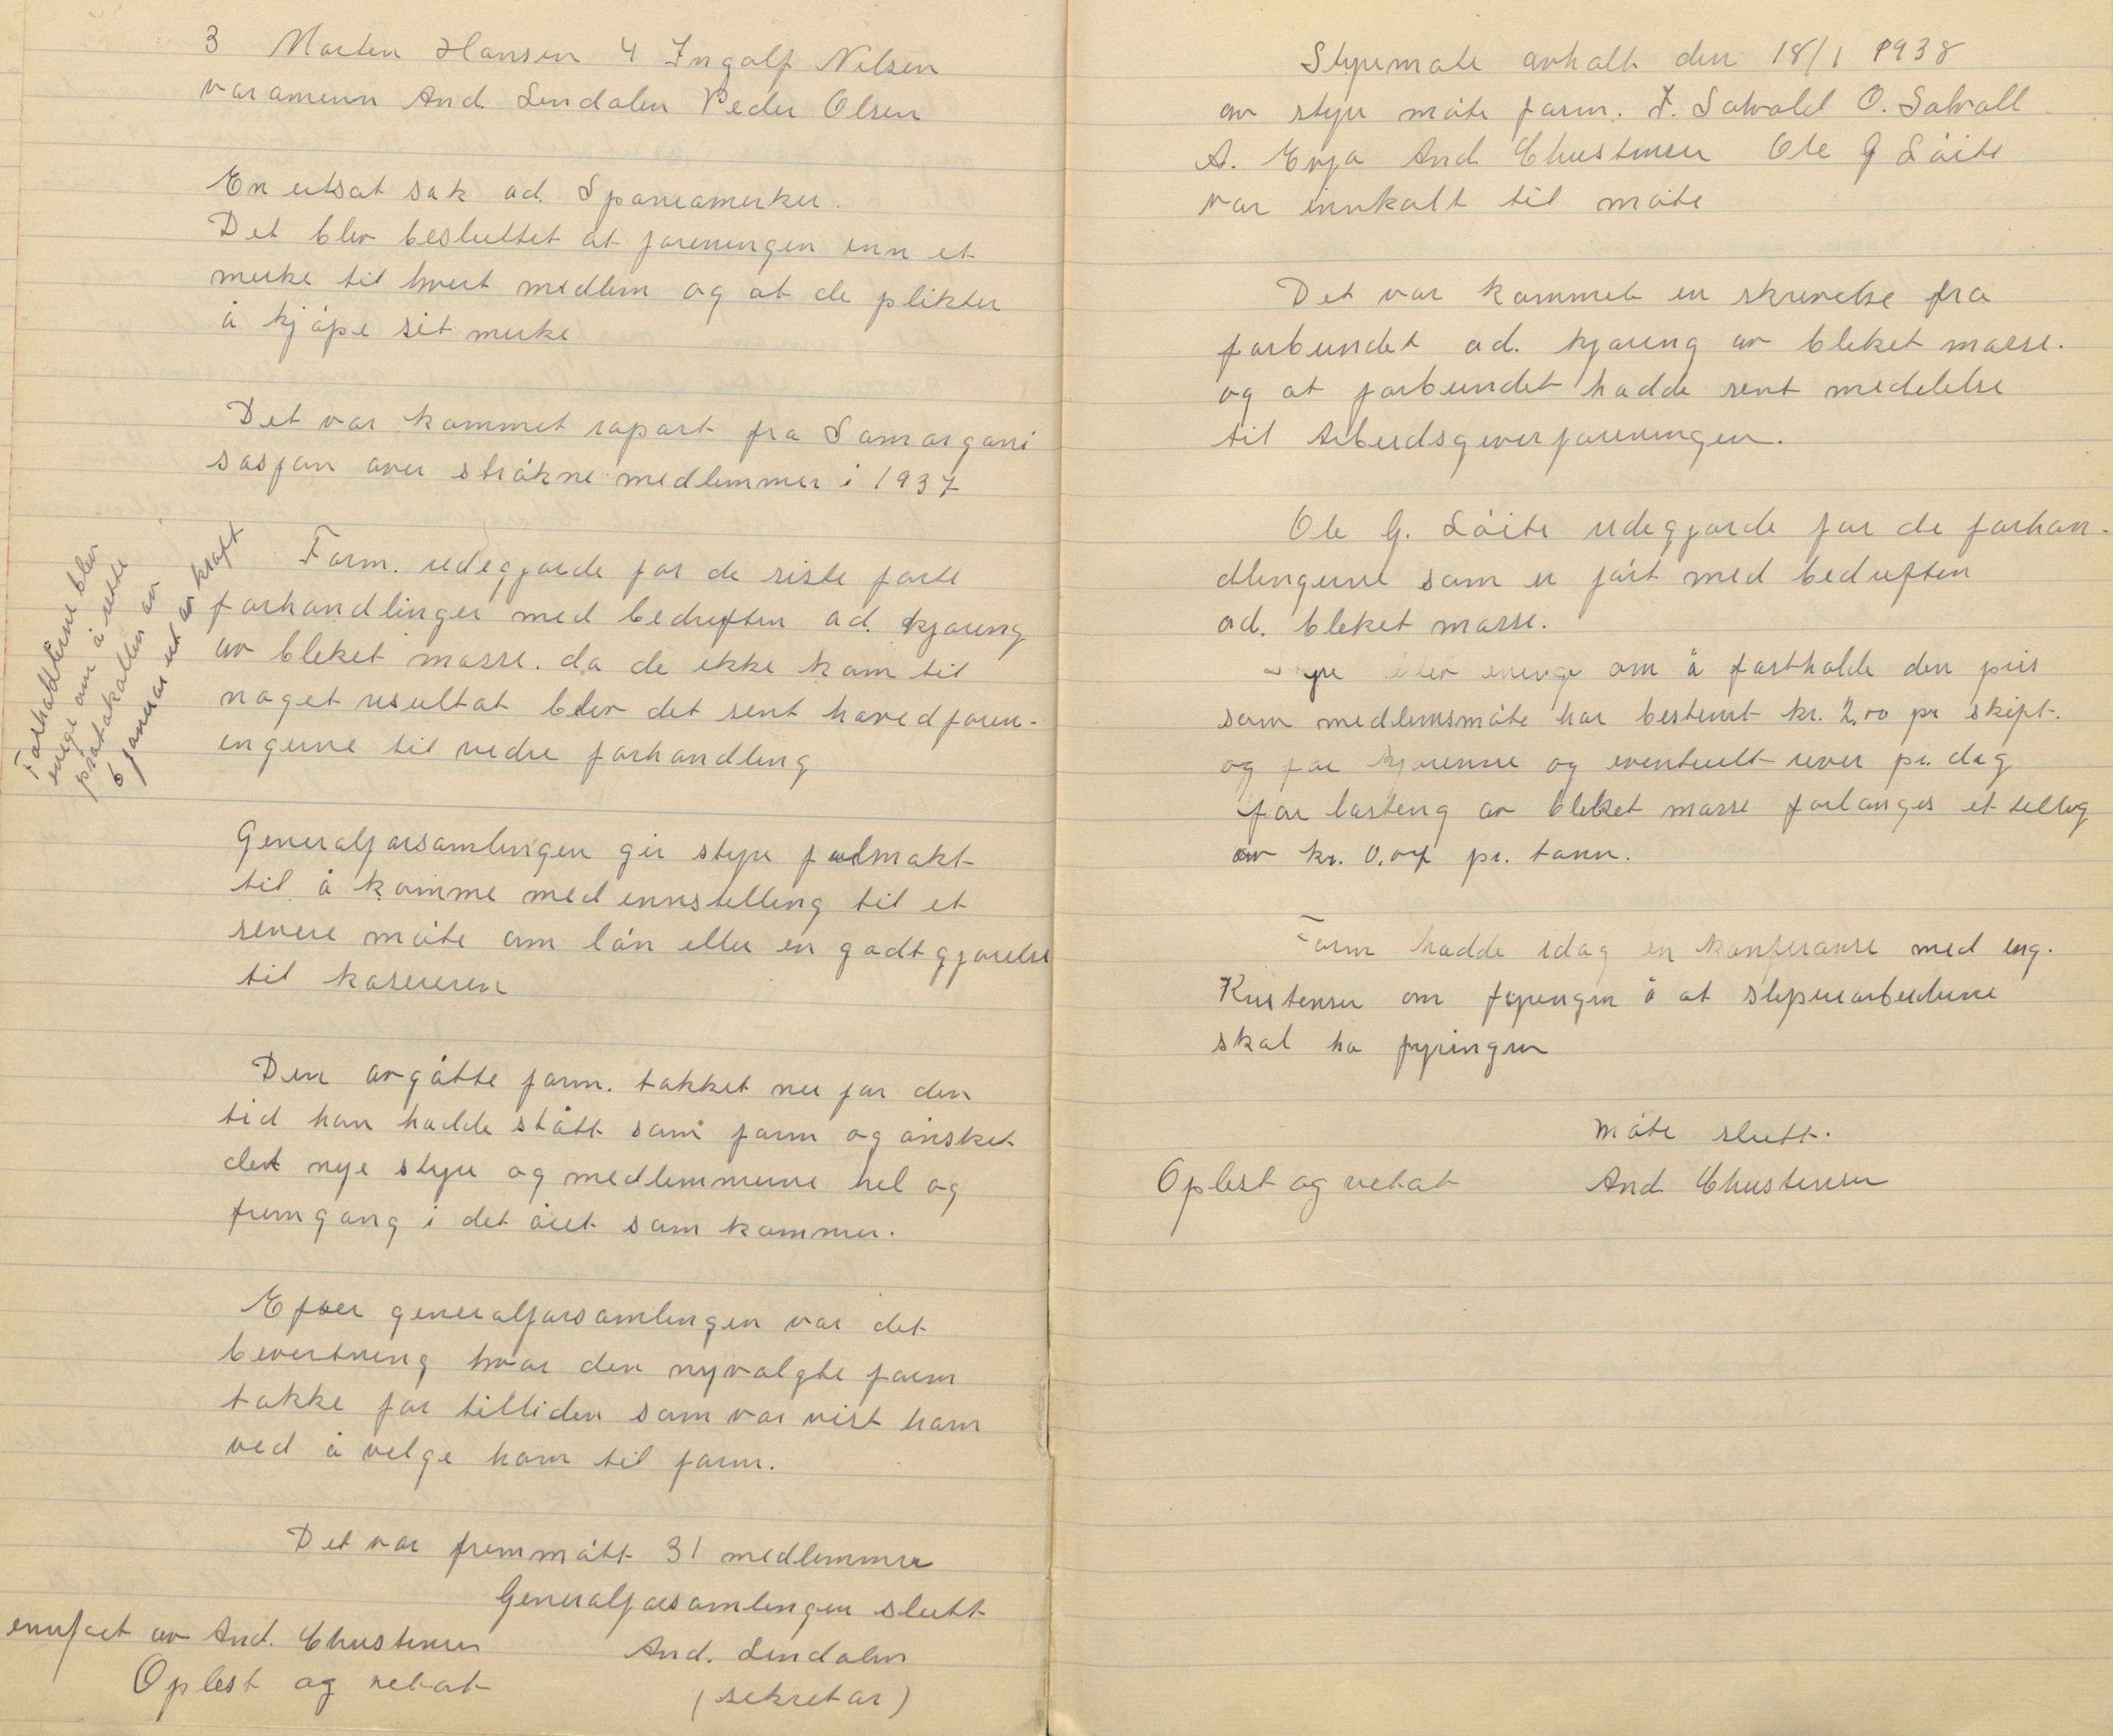 3 Marten Hansen 4 Ingolf Nilsen
varamenn And. Lindalen Peder Olsen
En utsat sak ad. Spaniamerker.
Det blev besluttet at foreningen inn et
merke til hvert medlem og at de plikter
å kjøpe sit merke
Det var kommet raport fra Samorgani
sasjon over strøkne medlemmer i 1937
Form. redegjorde for de siste førte
forhandlinger med bedriften ad. kjøring
av bleket masse. da de ikke kom til
noget resultat blev det sent hovedforen-
ingerne til vidre forhandling
Forhandlerne blev
enige om å sette
protokollen av
6 januar ut av kraft
Generalforsamlingen gir styre fulmakt
til å komme med innstilling til et
senere møte om lån eller en godtgjørelse
til kasereren
Den avgåtte form. takket nu for den
tid han hadde stått som form og ønsket
det nye styre og medlemmerne hel og
fremgang i det året som kommer.
Efter generalforsamlingen var det
bevertning hvor den nyvalgte form
takke for tilliden som var vist ham
ved å velge ham til form.
Det var fremmøtt 31 medlemmer
Generalforsamlingen slutt
innført av And. Christensen
And. Lindalen
Oplest og vetat
(sekretær)
Styremøte avholt den 18/1 1938
av styre møte form. F. Solvold O. Solvoll
A. Evja And. Christensen Ole G Løite
var innkalt til møte
Det var kommet en skrivelse fra
forbundet ad. kjøring av bleket masse.
og at forbundet hadde sent medelelse
til Arbeidsgiverforeningen.
Ole G. Løite redegjorde for de forhan-
dlingerne som er ført med bedriften
ad. bleket masse.
Styre blev enige om å fastholde den pris
som medlemsmøte har bestemt kr. 2,00 pr skift.
og for kjørerne og eventuelt river pr. dag
for lasting av bleket masse forlanges et tilleg
av kr. 0,07 pr. tonn.
Form hadde idag en konferanse med ing.
Kristensen om fyringen å at sliperiarbeiderne
skal ha fyringen
Møte slutt.
Oplest og vetat
And. Christensen